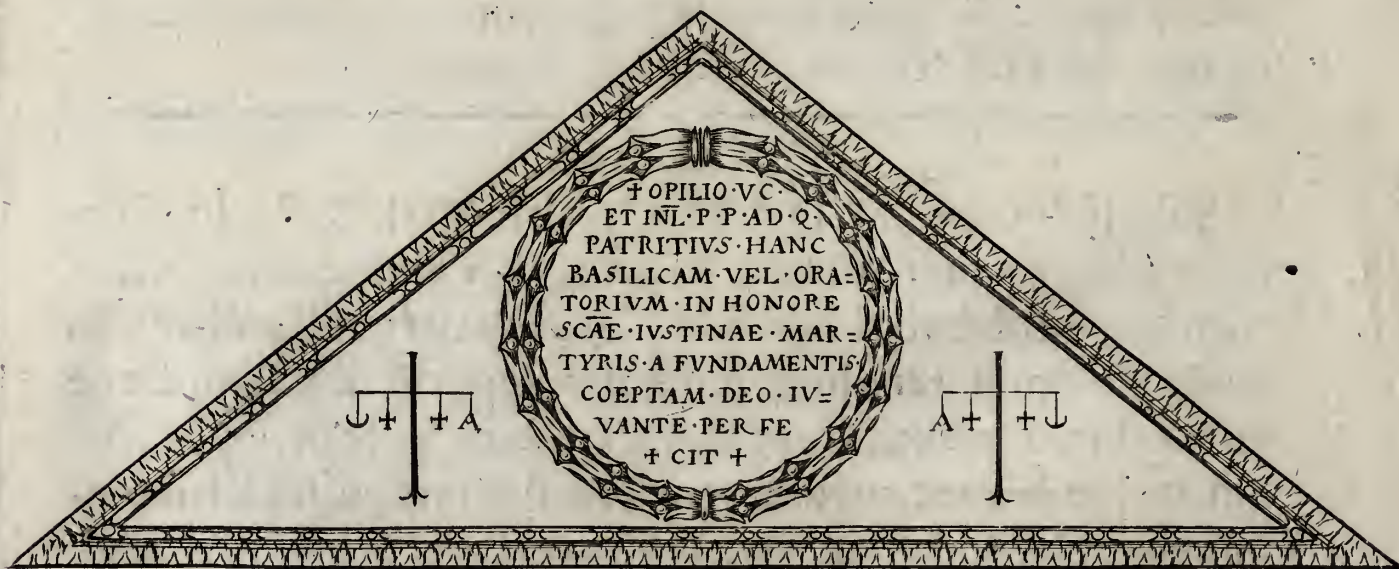 ✝OPILIO·VC·
ET IN̅L̅·P·P·AD·Q·
PATRITIVS·HANC
BASILICAM·VEL·ORA=
TORIVM·IN HONORE
SC̅A̅E̅·IVSTINAE·MAR=
TYRIS·A FVNDAMENTIS
COEPTAM·DEO·IV=
VANTE·PERFE
✝ CIT ✝
ω ✝ ✝ A
A ✝ ✝ ω